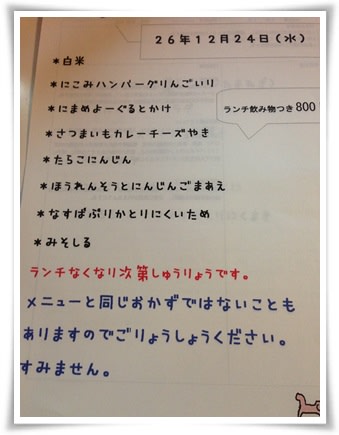 26年12月24日(水)
*白米
*にこみハンバーグりんごいり
ランチ飲み物つき800
*にまめよーぐるとかけ
*さつまいもカレーチーズやき
*たらこにんじん
*ほうれんそうとにんじんごまあえ
*なすぱぷりかとりにくいため
*みそしる
ランチなくなり次第しゅうりょうです。
メニューと同じおかずではないことも
ありますのでごりょうしょうください。
すみません。